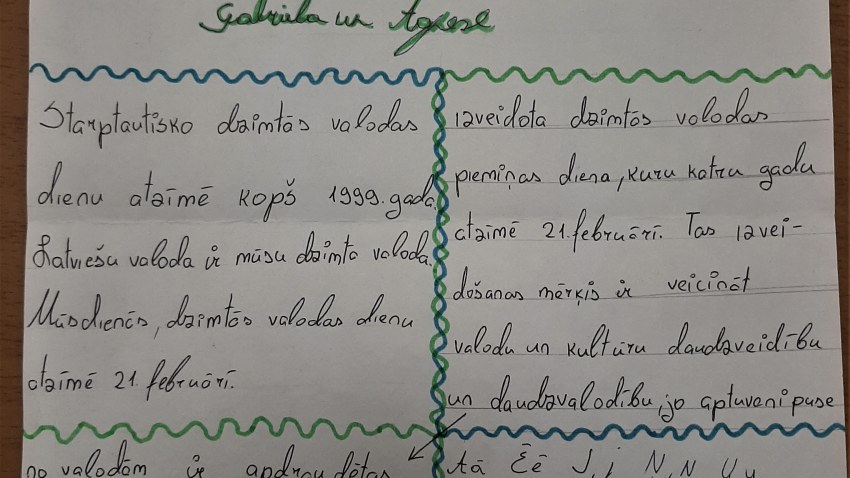 Gabriela un Agnese
Starptautisko dzimtās valodas
dienu atzīmē kopš 1999.gada.
Latviešu valoda ir mūsu dzimtā valoda.
Mūsdienās, dzimtās valodas dienu
atzīmē 21.februārī.
izveidota dzimtās valodas
piemiņas diena, kuru katru gadu
atzīmē 21.februārī. Tas izvei-
došanas mērķis ir veicināt
valodu un kultūru daudzveidību
un daudzvalodību, jo aptuveni puse
no valodām ir apdraudētas
Āā Ēē J,j N,N U,u